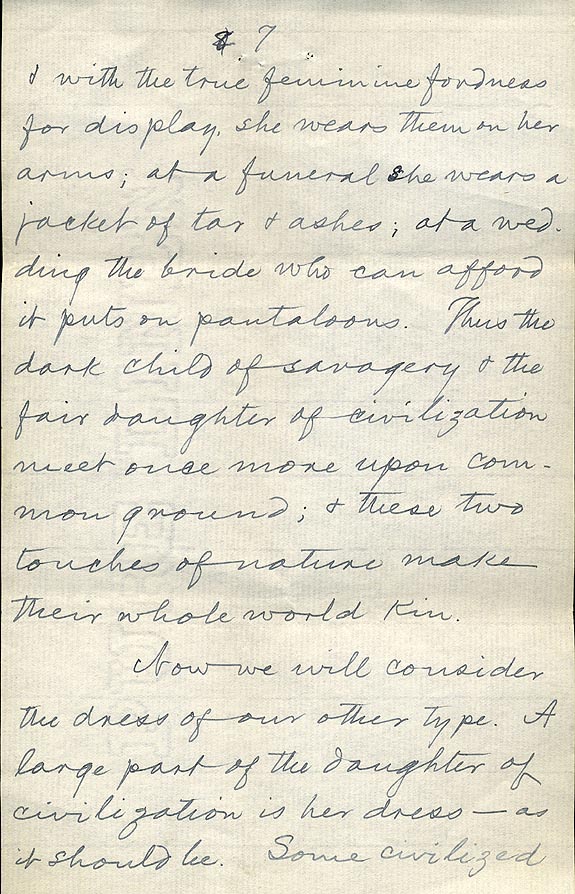 7
& with the true feminine fondness
for display, she wears them on her
arms; at a funeral she wears a
jacket of tar & ashes; at a wed-
ding the bride who can afford
it puts on pantaloons. Thus the
dark child of savagery & the
fair daughter of civilization
meet once more upon com-
mon ground; & these two
touches of nature make
their whole world kin.
Now we will consider
the dress of our other type. A
large part of the daughter of
civilization is her dress — as
it should be. Some civilized